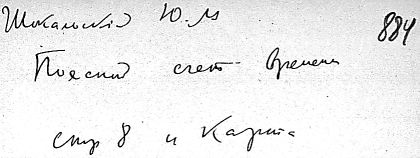 Шокальский Ю.М
884
Поясной счет времени
стр 8 и карта